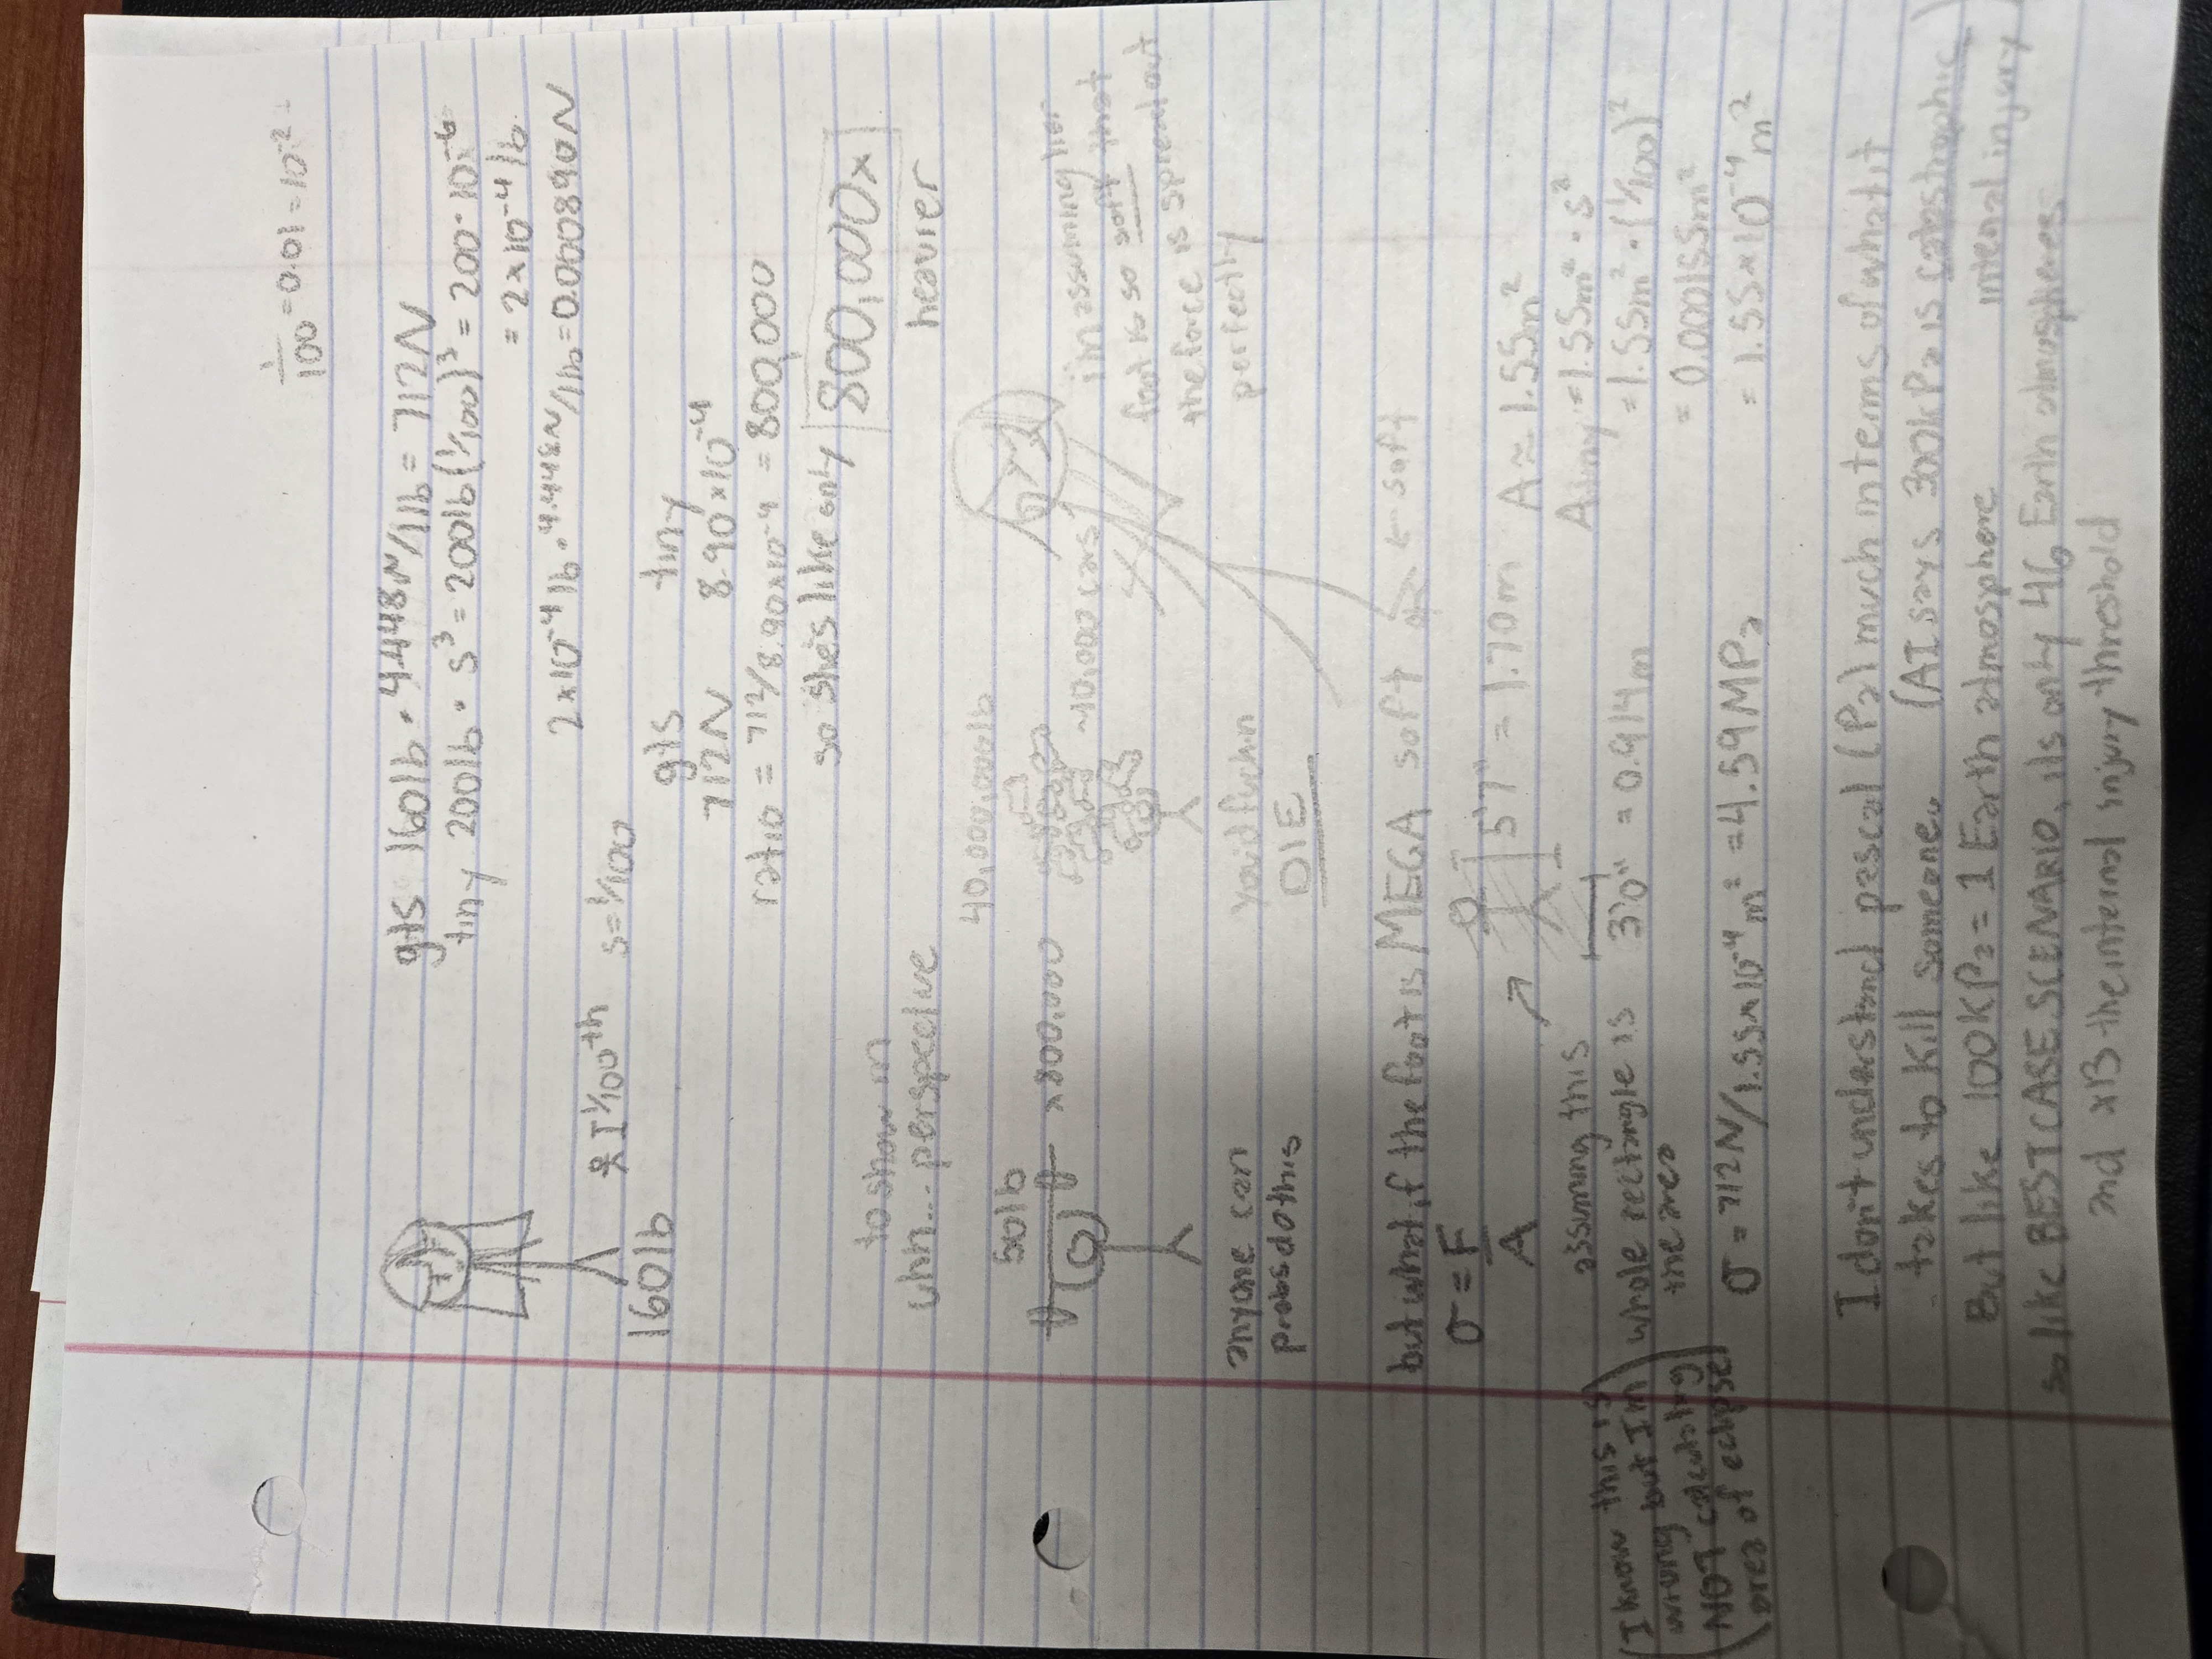 1/100 = 0.01 = 10^-2
gts 160lb · 4.448N/1lb = 712N
tiny 200lb · s^3 = 200lb(1/100)^3 = 200·10^-6
= 2x10^-4 lb
2x10^-4 lb · 4.448N/1lb = 0.000890N
1/100th s=1/100
160lb
gts tiny
712N 8.90x10^-4
ratio = 712/8.90x10^-4 = 800,000
so she's like only 800,000x
heavier
to show in
uhh... perspective
50lb
x800,000
40,000,000lb
~10,000 cars
im assuming her
foot is so soft that
the force is spread out
perfectly
anyone can
probs do this
DIE
but what if the foot is MEGA soft
soft
σ = F/A
5'7" = 1.70m A ≈ 1.55m^2
Atiny = 1.55m^2 · s^2
= 1.55m^2 · (1/100)^2
= 0.00155m^2
= 1.55x10^-4 m^2
assuming this
whole rectangle is 3'0" = 0.914m
the area
(I know this is
wrong but Im
NOT calculating
area of eclipse)
σ = 712N/1.55x10^-4 m^2 = 4.59MPa
I don't understand pascal (Pa) much in terms of what it
takes to kill someone. (AI says 300kPa is catastrophic
internal injury)
But like 100KPa = 1 Earth atmosphere
so like BEST CASE SCENARIO, its only 46 Earth atmospheres
and x13 the internal injury threshold